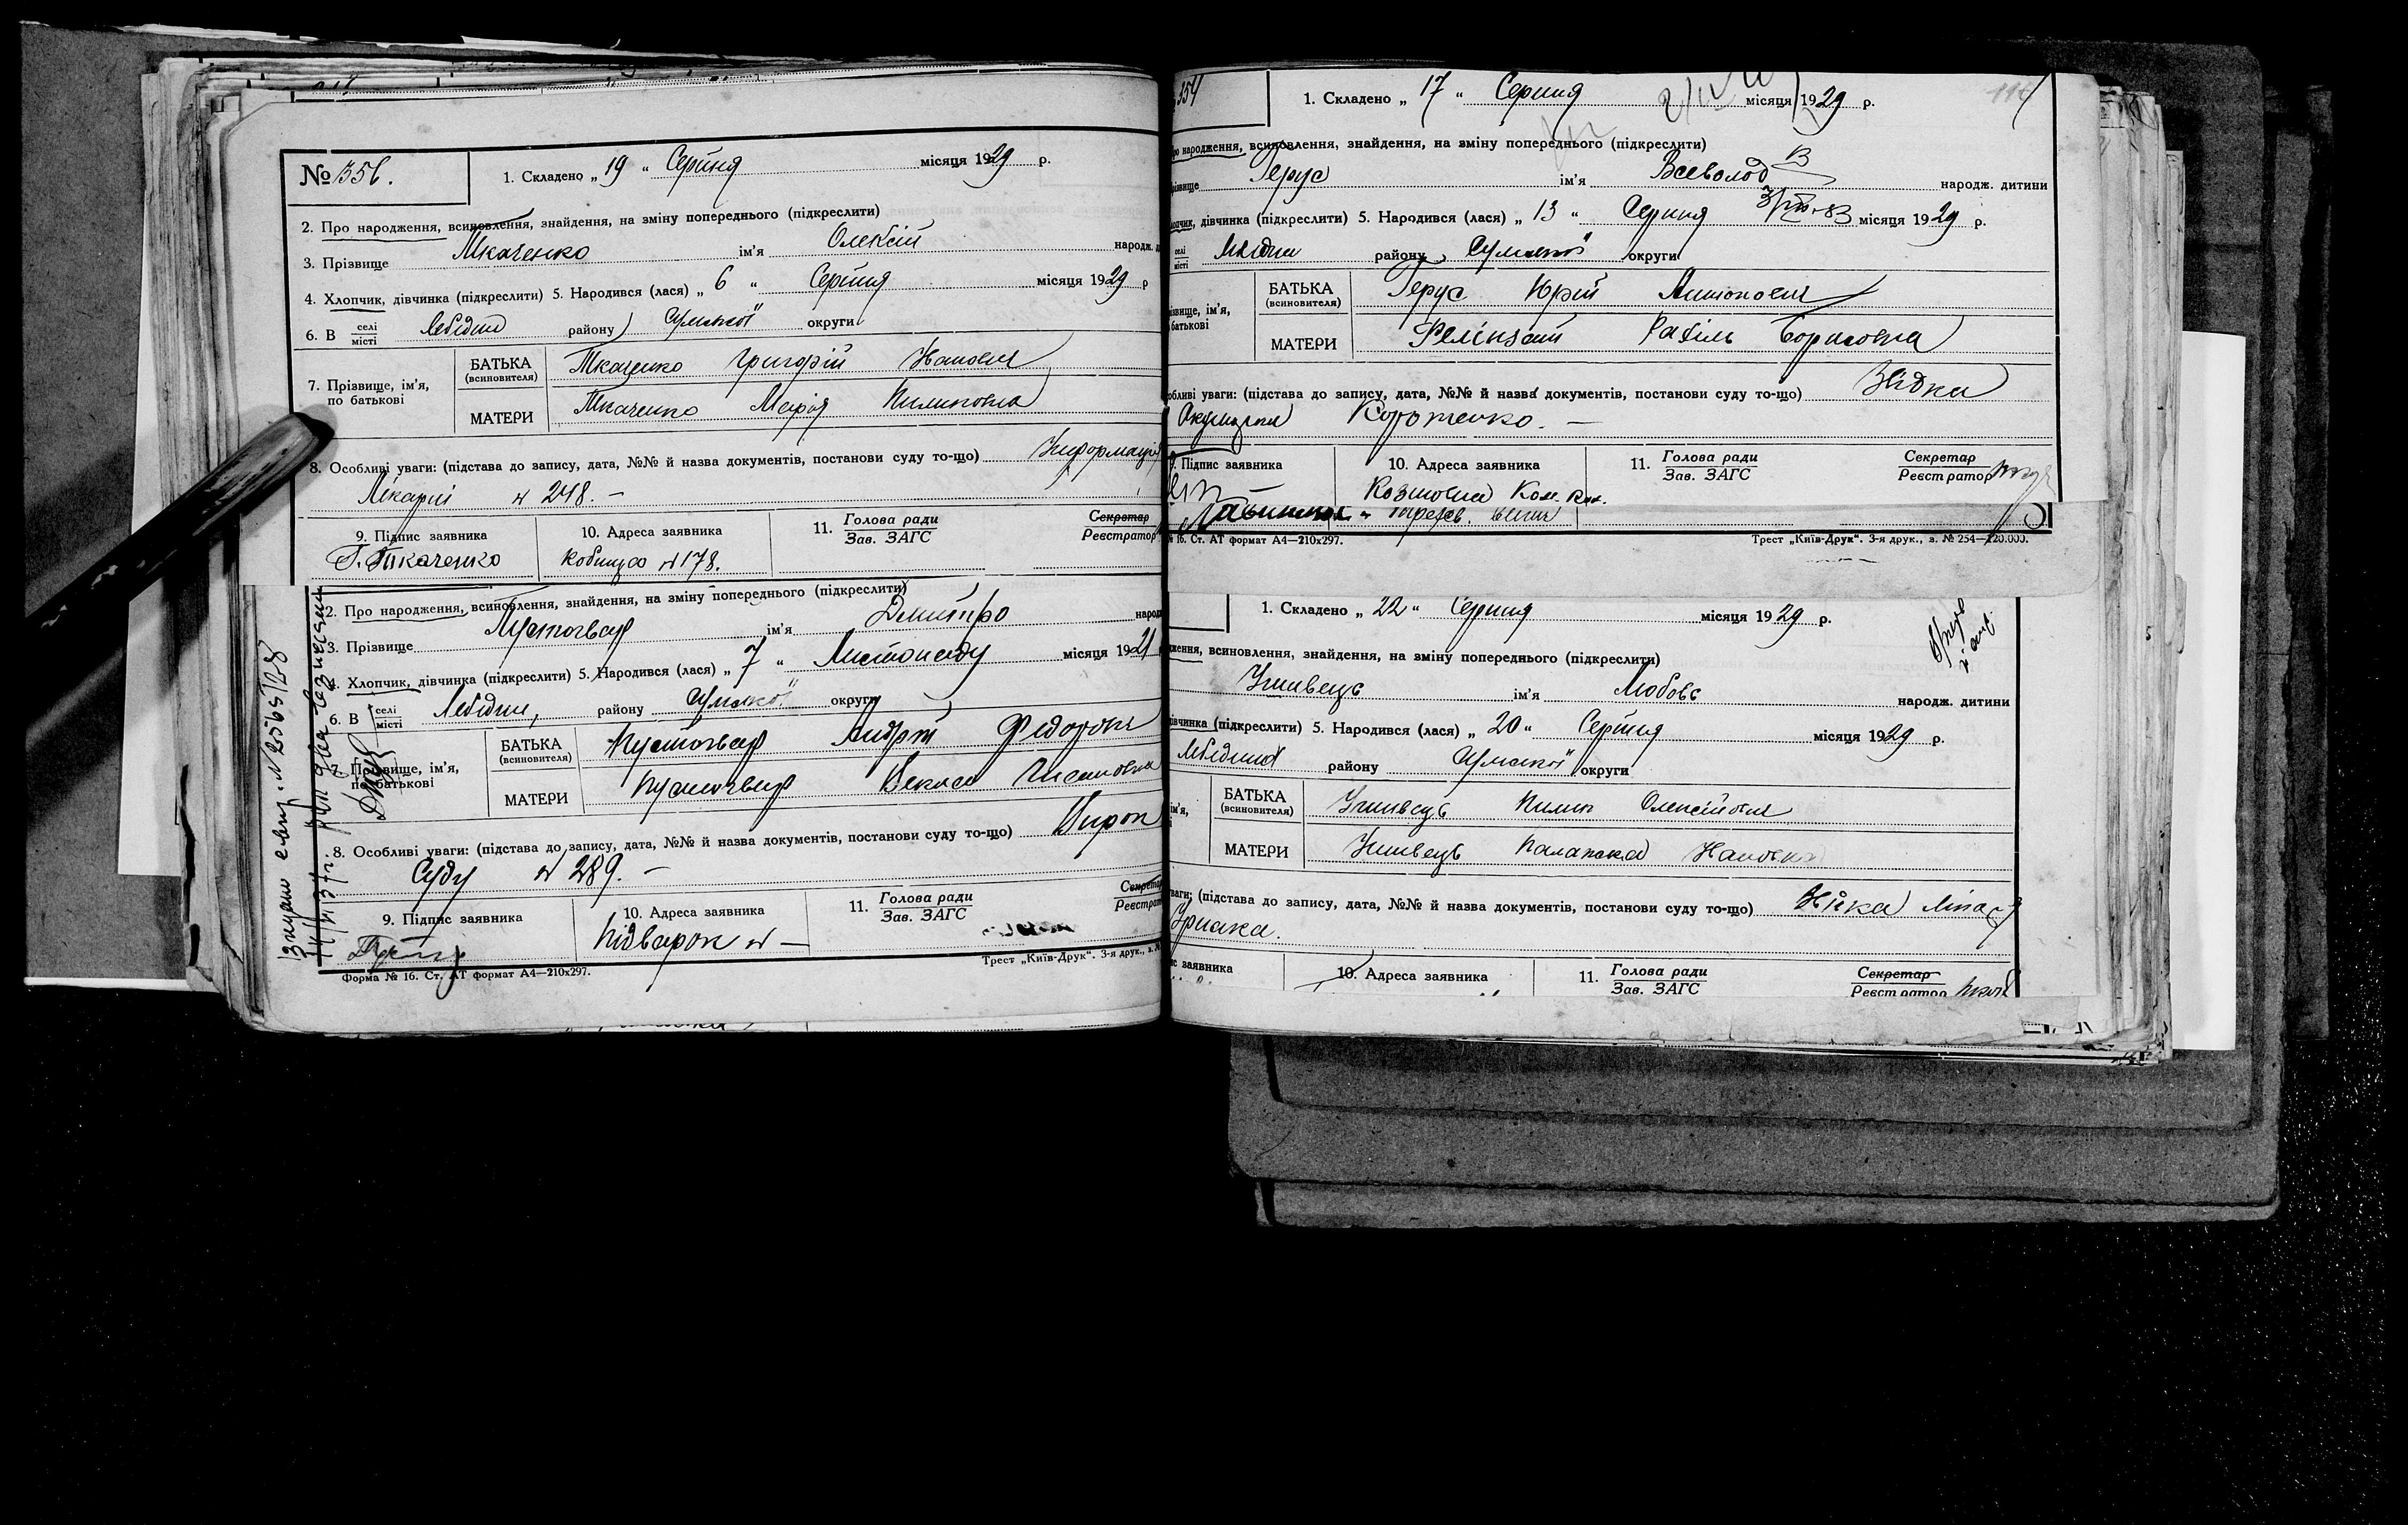 № 356.
1. Складено „ 19 “ Серпня місяця 1929 р.
2. Про народження, всиновлення, знайдення, на зміну попереднього (підкреслити)
3. Прізвище Ткаченко ім'я Олексій народж.
4. Хлопчик, дівчинка (підкреслити) 5. Народився (лася) „ 6 “ Серпня місяця 1929 р
6. В селі місті Лебідин району Сумської округи
7. Прізвище, ім'я, по батькові
БАТЬКА (всиновителя) Ткаченко Григорій Іванович
МАТЕРИ Ткаченко Марія Пилиповна
8. Особливі уваги: (підстава до запису, дата, №№ й назва документів, постанови суду то-що) Інформація
Лікарні № 248. —
9. Підпис заявника
Г. Ткаченко
10. Адреса заявника
Кобища № 178.
11. Голова ради
Зав. ЗАГС
Секретар
Реєстратор
2. Про народження, всиновлення, знайдення, на зміну попереднього (підкреслити)
3. Прізвище Пустовар ім'я Дмитро народ
4. Хлопчик, дівчинка (підкреслити) 5. Народився (лася) „ 7 “ Листопаду місяця 1921
6. В селі місті Лебідин, району Сумської округи
7. Прізвище, ім'я, по батькові
БАТЬКА (всиновителя) Пустовар Андрій Федорович
МАТЕРИ Пустовар Векла
8. Особливі уваги: (підстава до запису, дата, №№ й назва документів, постанови суду то-що) Вирок
Суду № 289. —
9. Підпис заявника
10. Адреса заявника
Підварок № —
11. Голова ради
Зав. ЗАГС
Секретар
Реєстрат
Форма № 16. Ст. АТ формат А4—210x297.
Трест „Київ-Друк“. 3-я друк., з. №
354
1. Складено „ 17 “ Серпня місяця 1929 р.
Про народження, всиновлення, знайдення, на зміну попереднього (підкреслити)
прізвище Герус ім'я Всеволод народж. дитини
хлопчик, дівчинка (підкреслити) 5. Народився (лася) „ 13 “ Серпня місяця 1929 р.
селі місті Лебідин району Сумської округи
прізвище, ім'я, батькові
БАТЬКА (всиновителя) Герус Юрій Антонович
МАТЕРИ Рахіль Борисовна
особливі уваги: (підстава до запису, дата, №№ й назва документів, постанови суду то-що) Звідка
Акушерки Коротенко. —
9. Підпис заявника
10. Адреса заявника
11. Голова ради
Зав. ЗАГС
Секретар
Реєстратор
№ 16. Ст. АТ формат А4—210x297.
Трест „Київ-Друк“. 3-я друк., з. № 254—120.000.
1. Складено „ 22 “ Серпня місяця 1929 р.
ження, всиновлення, знайдення, на зміну попереднього (підкреслити)
Ушивець ім'я Любовь народж. дитини
дівчинка (підкреслити) 5. Народився (лася) „ 20 “ Серпня місяця 1929 р.
Лебідині району Сумської округи
ім'я,
БАТЬКА (всиновителя) Ушивець Пилип Олексійович
МАТЕРИ Ушивець Палажка Ивановна
уваги: (підстава до запису, дата, №№ й назва документів, постанови суду то-що)
заявника
10. Адреса заявника
11. Голова ради
Зав. ЗАГС
Секретар
Реєстратор